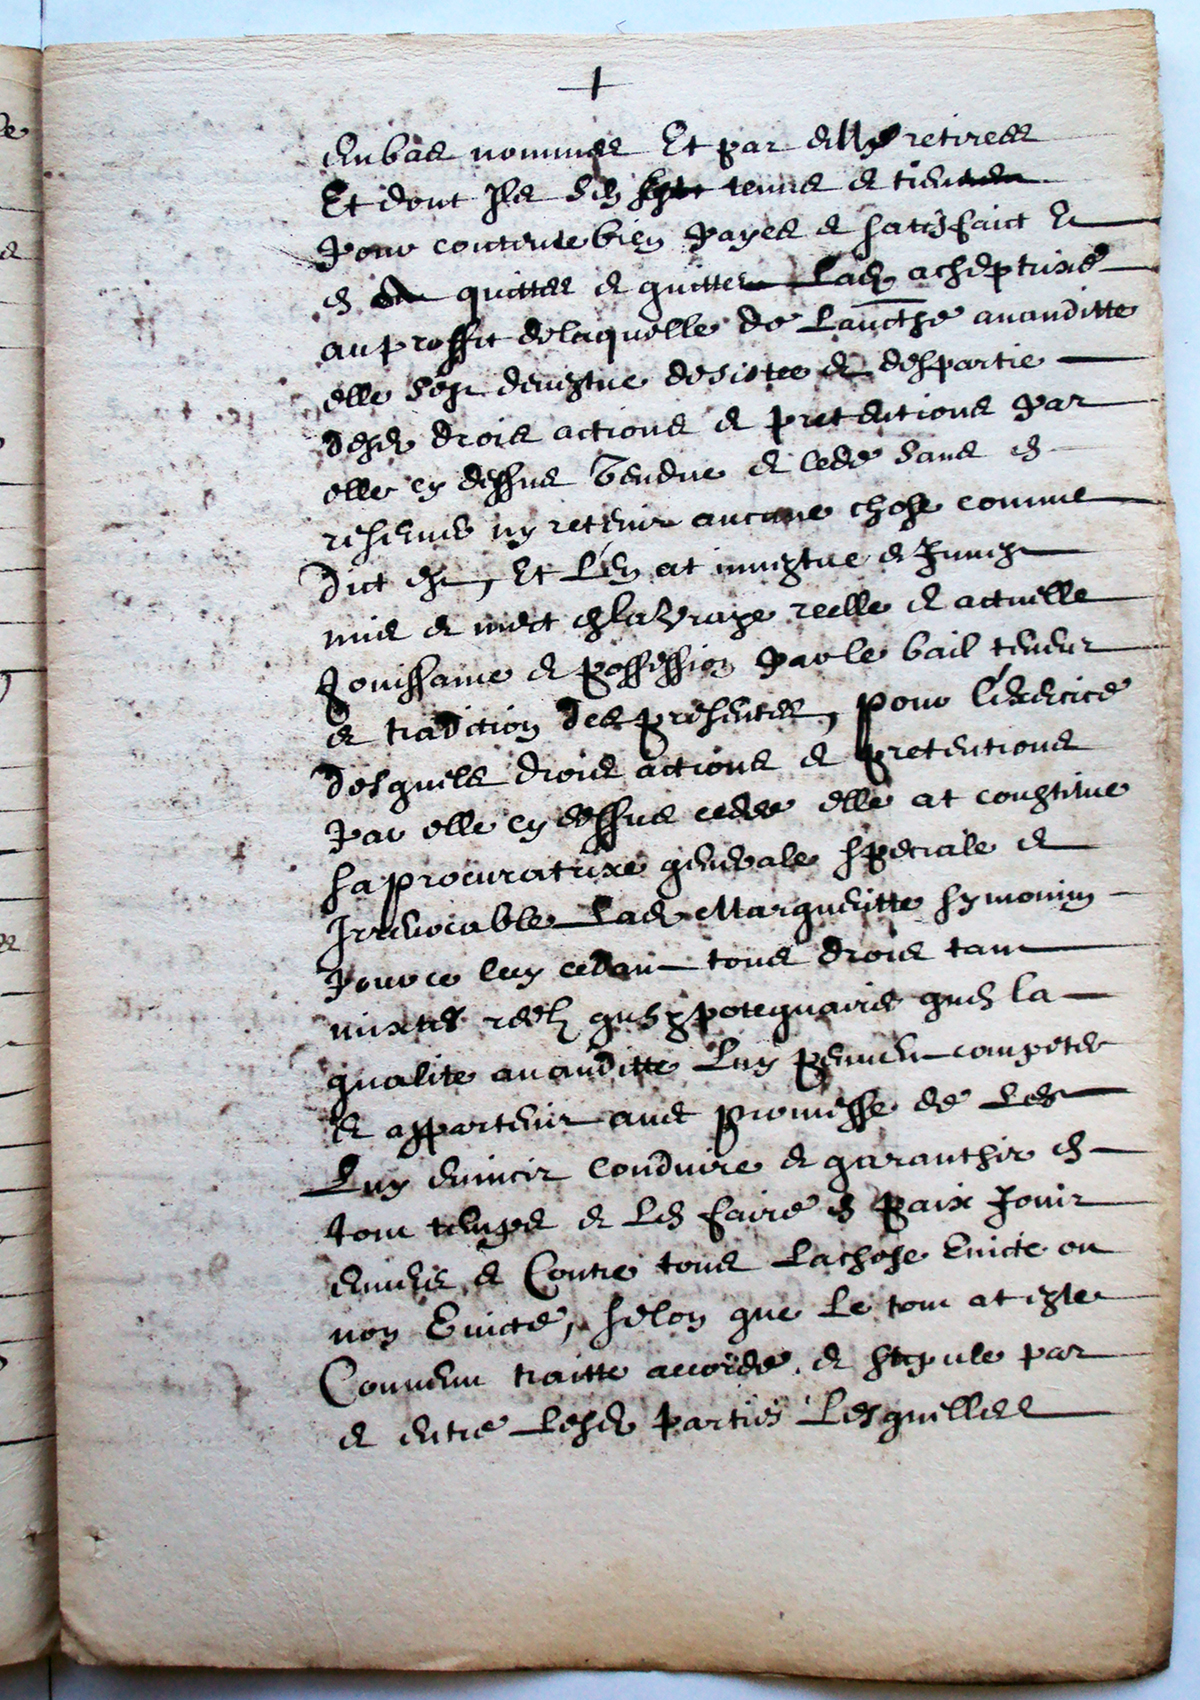 +
enbas nommes Et par elles retirees
Et dont Ils s'en tenus et tiennen
Pour contente bien payes et satisfaict Et
en quittes et quitten Lad acheptrixe
au proffit de laquelle de Lauctte auanditte
elle s'est deuestue desistee et despartie
desd drois actions et pretentions par
elle cy dessus Vendue et cede sans en
reserues ny retenir aucune chose comme
dict est, Et L'en at inuestue et Inuest
mis et mect en la Vraye reelle et actuelle
Jouissance et possession par le bail teneur
et tradition des presentes, pour l'exercice
desquels drois actions et pretentions
Par elle cy dessus cedee elle at constitue
sa procuratrixe generale speciale et
Irreuocable Lad Margueritte symonin
Pour ce luy cedant tous drois tant
mixtes reels que ypotequaires quen la
qualite auanditte Luy peuuent competer
et appartenir auec promesse de Les
Luy euincir Conduire et garanthir en
tout temps et Len faire en paix Jouir
enuers et Contre tous La chose Euicte ou
non Euicte, selon que Le tout at este
Conuenu traitte accorde et stipule par
et entre Lesd parties Lesquelles